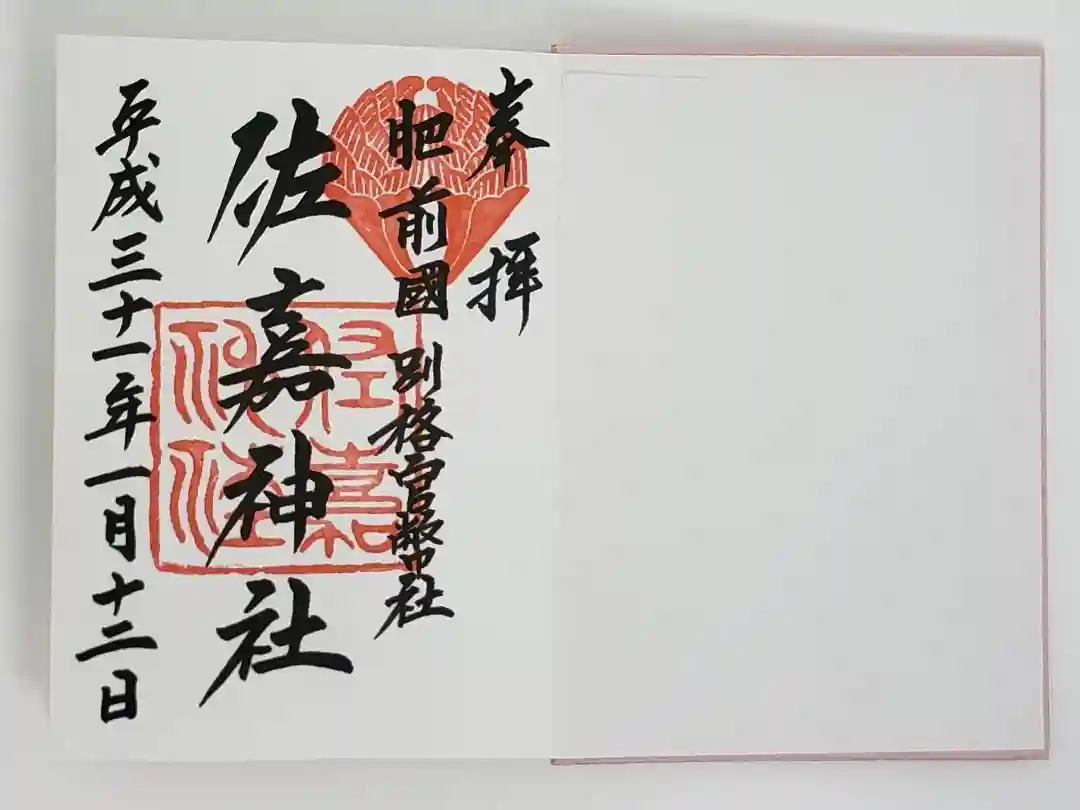 奉拝
肥前國 別格官幣社
佐嘉神社
平成三十一年一月十二日
佐嘉神社